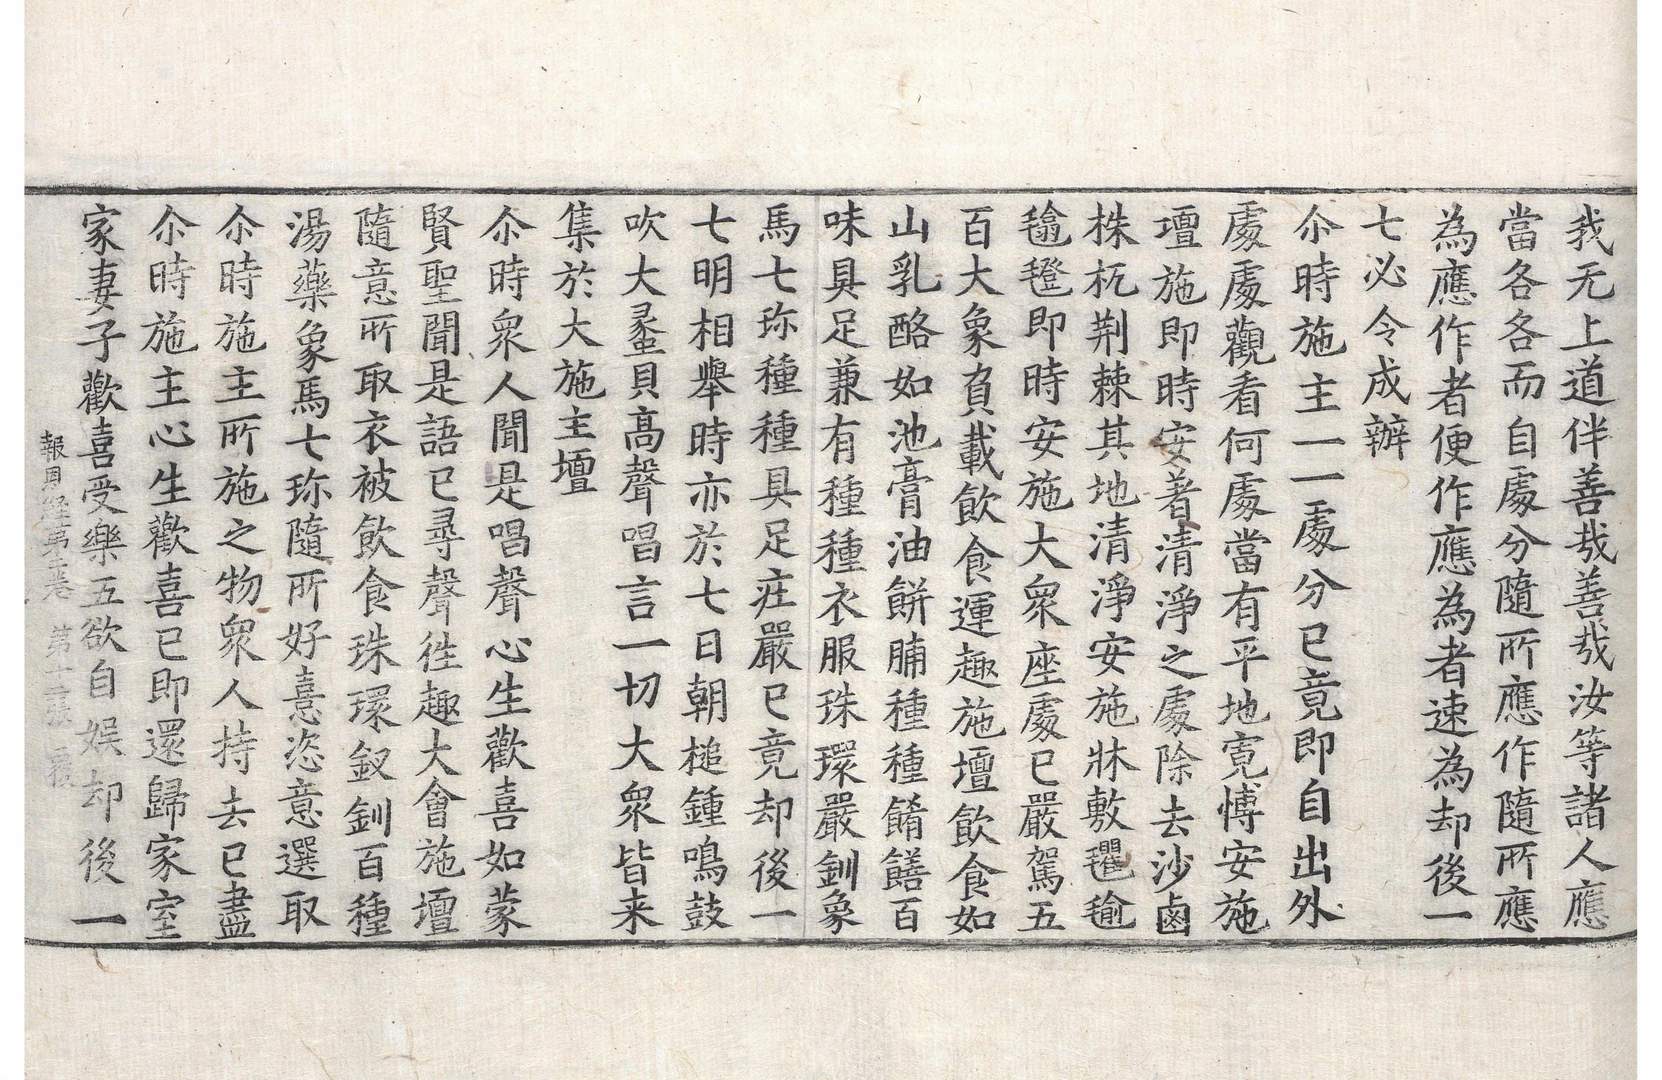 我无上道伴善哉善哉汝等諸人應
當各各而自處分隨所應作隨所應
為應作者便作應為者速為却後一
七必令成辦
尒時施主一一處分已竟即自出外
處處觀看何處當有平地寬愽安施
壇施即時安著清淨之處除去沙鹵
株杌荆棘其地清淨安施牀敷氍毹
毹㲪即時安施大衆座處已嚴駕五
百大象負載飲食運趣施壇飲食如
山乳酪如池膏油餅脯種種餚饍百
味具足兼有種種衣服珠環嚴釧象
馬七珎種種具足疰嚴已竟却後一
七明相舉時亦於七日朝槌鍾鳴鼓
吹大蠡貝高聲唱言一切大衆皆来
集於大施主壇
尒時衆人聞是唱聲心生歡喜如蒙
賢聖聞是語已尋聲徃趣大會施壇
隨意所取衣被飲食珠環釵釧百種
湯藥象馬七珎隨所好憙恣意選取
尒時施主所施之物衆人持去已盡
尒時施主心生歡喜已即還歸家室
家妻子歡喜受樂五欲自娱却後一
報恩經第 卷 第十二張